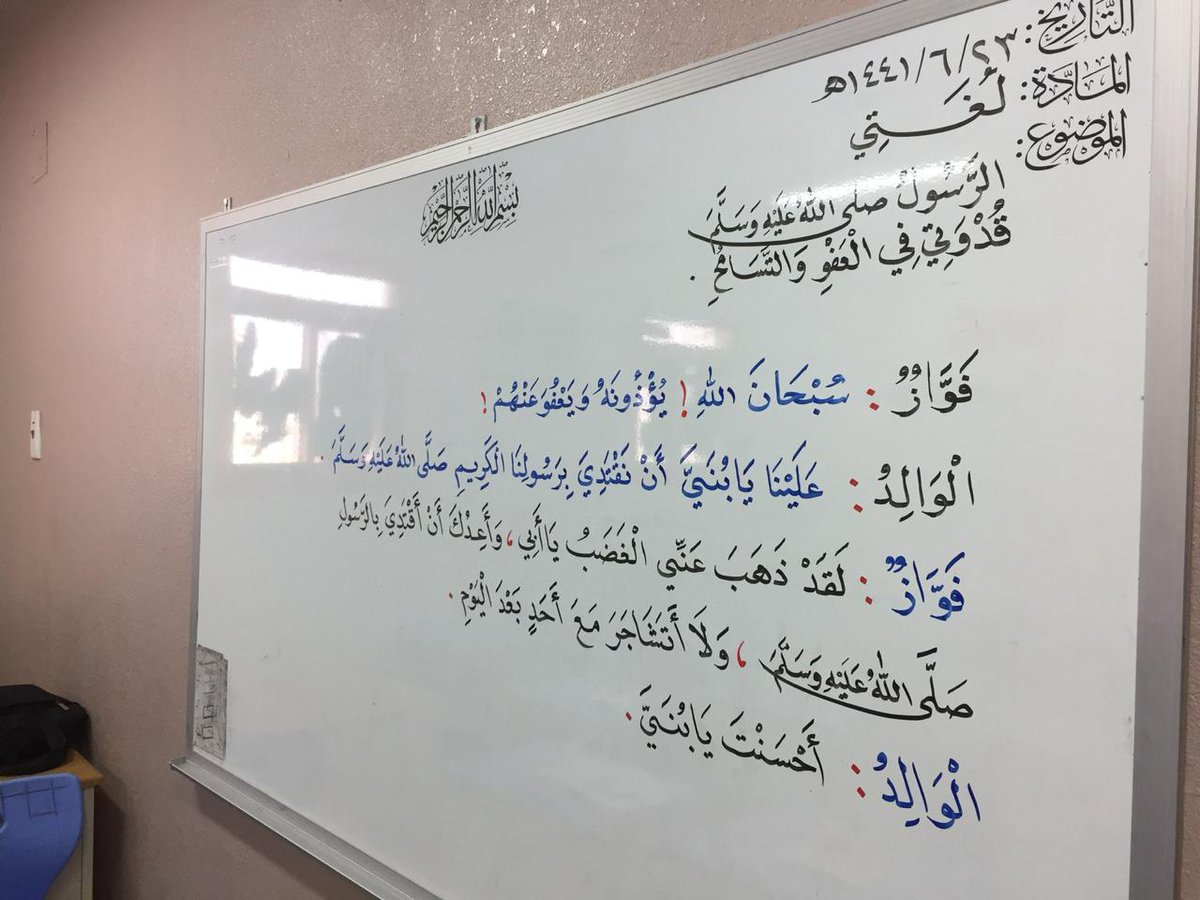 التَّارِيخ: ٢٣/٦/١٤٤١هـ
المَادَّة: لُغَتِي
الموضوع:
بِسْمِ اللَّهِ الرَّحْمَنِ الرَّحِيمِ
الرَّسُولُ صلى اللهُ عَلَيْهِ وَسَلَّمَ
قُدْوَتِي فِي الْعَفْوِ وَالتَّسَامُحِ .
فَوَّازٌ : سُبْحَانَ اللهِ ! يُؤْذُونَهُ وَيَعْفُو عَنْهُمْ !
الْوَالِدُ : عَلَيْنَا يَا بُنَيَّ أَنْ نَقْتَدِيَ بِرَسُولِنَا الْكَرِيمِ صَلَّى اللهُ عَلَيْهِ وَسَلَّمَ .
فَوَّازٌ : لَقَدْ ذَهَبَ عَنِّي الْغَضَبُ يَا أَبِي ، وَأَعِدُكَ أَنْ أَقْتَدِيَ بِالرَّسُولِ
صَلَّى اللهُ عَلَيْهِ وَسَلَّمَ ، وَلَا أَتَشَاجَرَ مَعَ أَحَدٍ بَعْدَ الْيَوْمِ .
الْوَالِدُ : أَحْسَنْتَ يَا بُنَيَّ .